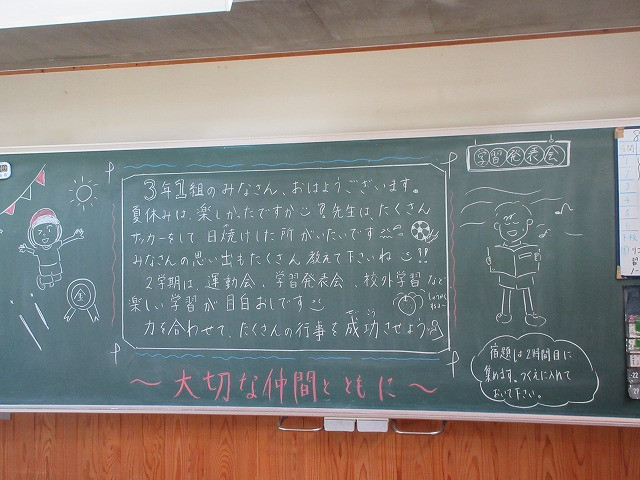 学習発表会
3年1組のみなさん、おはようございます。
夏休みは、楽しかったですか?先生は、たくさん
サッカーをして日焼けした所がいたいです
みなさんの思い出もたくさん教えて下さいね!!
2学期は、運動会、学習発表会、校外学習など
楽しい学習が目白おしです
力を合わせて、たくさんの行事を成功させよう
せいこう
金
〜大切な仲間とともに〜
宿題は2時間目に
集めます。つくえに入れて
おいて下さい。